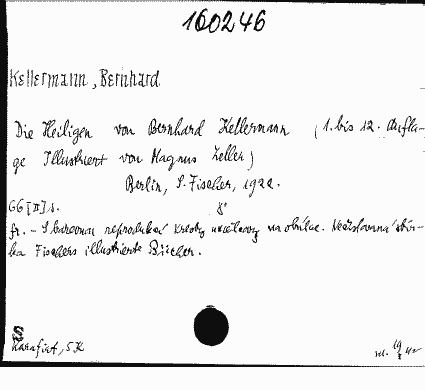 160246
Kellermann, Bernhard.
Die Heiligen von Bernhard Kellermann (1. bis 12. Aufla-
ge Illustriert von Magnus Zeller)
Berlin, S. Fischer, 1922.
66 [II] s. 8°
fr. – S barevnou reprodukcí kresby na obálce. Nečíslovaná sbír-
ka Fischers illustrierte Bücher.
S
Karafiát, SK